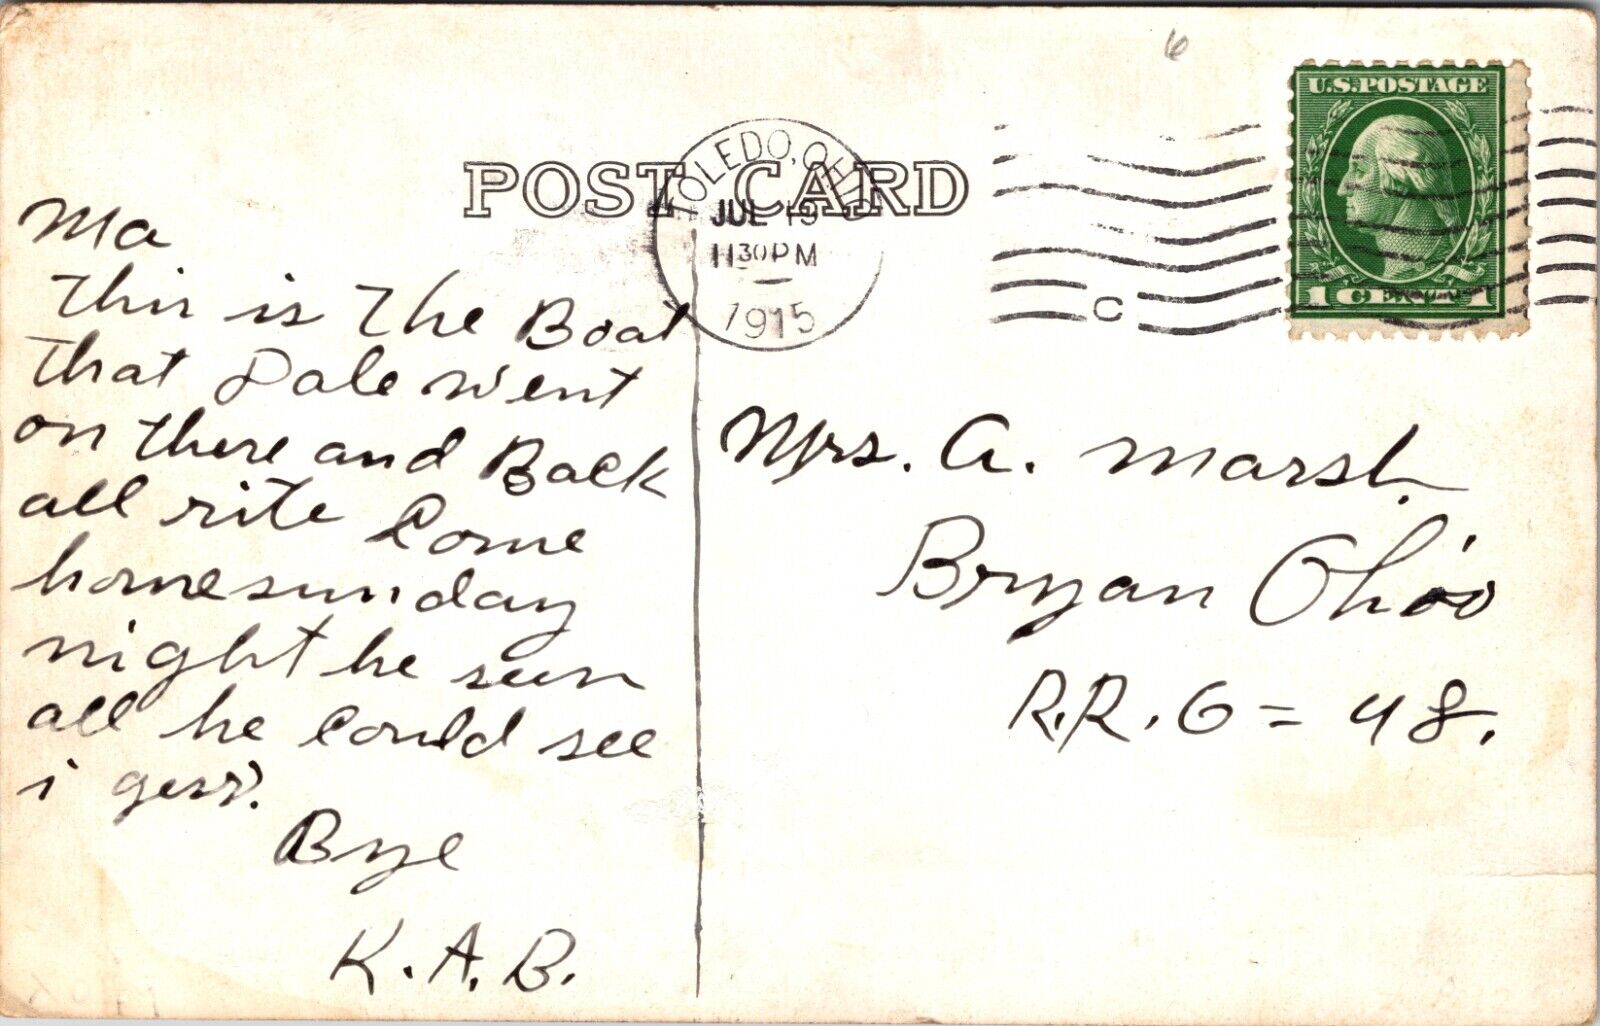 6
U.S. POSTAGE
1 CENT 1
POST CARD
TOLEDO, OHIO
JUL 19
11 30 PM
1915
C
Ma
This is The Boat
That Dale went
on there and Back
all rite Come
home sunday
night he seen
all he Could see
i gess.
Bye
K.A.B.
Mrs. A. Marsh.
Bryan Ohio
R.R. 6 = 48.